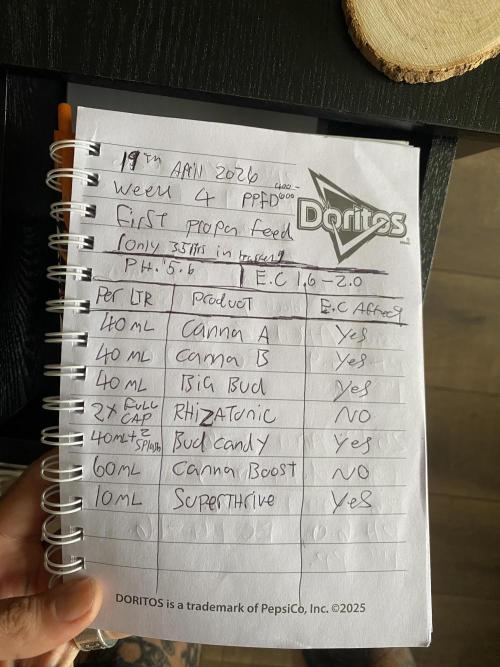 19TH April 2026
Week 4 PPFD 400-600
First proper feed
(only 35ltrs in
Doritos
PH. 5.6 E.C 1.6-2.0
Per LTR Product E.C Affect
40ML Canna A Yes
40ML Canna B Yes
40ML Big Bud Yes
2x FULL CAP RHIZATONIC NO
40ML+2 SPLASH Bud candy Yes
60ML Canna Boost NO
10ML SUPERTHRIVE Yes
DORITOS is a trademark of PepsiCo, Inc. ©2025